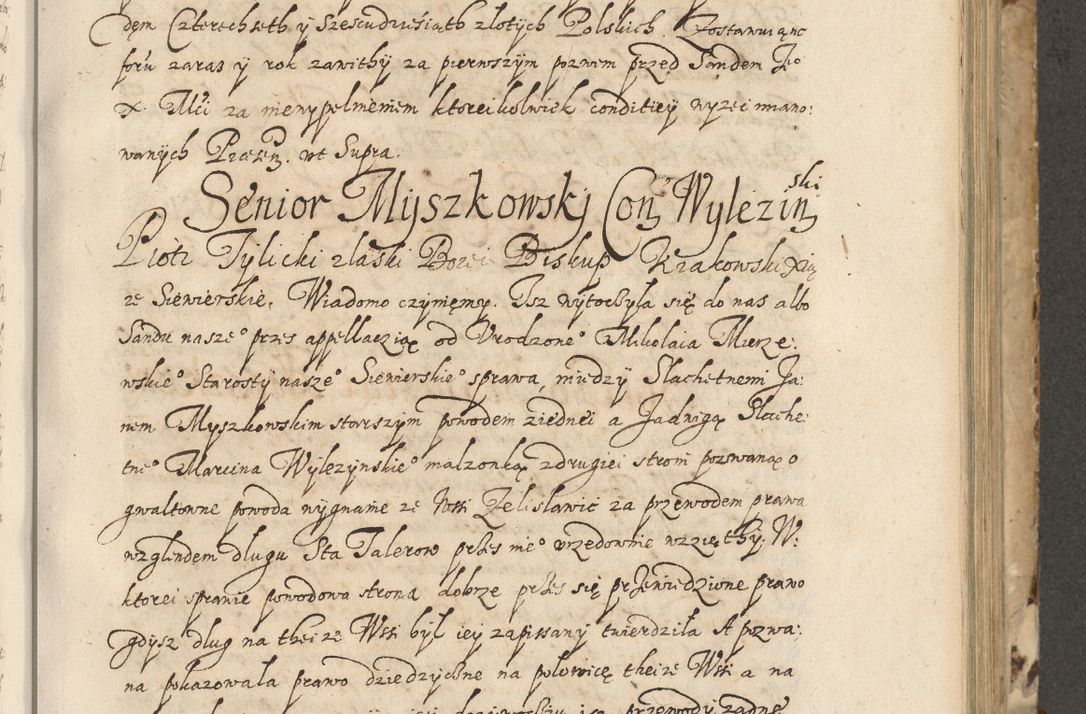 dęm Czterechseth y Szescudziesiąth złotych Polskich. Zostawuiąnc
foru zaras y rok zawithy za pierwszym pozwem przed Sandem Jeo
X Mći za niewypełnieniem ktoreikolwiek conditiey wyzei miano:
wanych Praesen. ut Supra.
Senior Myszkowsky Con Wylezinski
Piotr Tylicki z łaski Bozei Biskup Krakowski Xią
ze Siewierskie. Wiadomo czyniemy. Isz wytoczyła się do nas albo
Sandu naszeo przes appellaczią od Urodzoneo Mikolaia Mierze:
wskieo Starosty naszeo Siewierskieo sprawa, miedzy Slachetnemi Ja:
nem Myszkowskim starszym powodem ziednei a Jadwigą Slache:
tneo Marcina Wylezynskieo malzonką zdrugiei stroni pozwaną o
gwaltowne powoda wygnanie ze Wsi Zelislawic za przewodem prawa
wzglendem dlugu Sta Talerow przes nieo urzedownie wzziethy. W:
ktorei sprawie powodowa strona dobrze przes się przewiedzione prawo
gdysz dlug na theize Wsi był iey zapissany twierdziła A pozwa:
na pokazowala prawo dziedzyczne na polowicę theize Wsi a na
przewody zadne